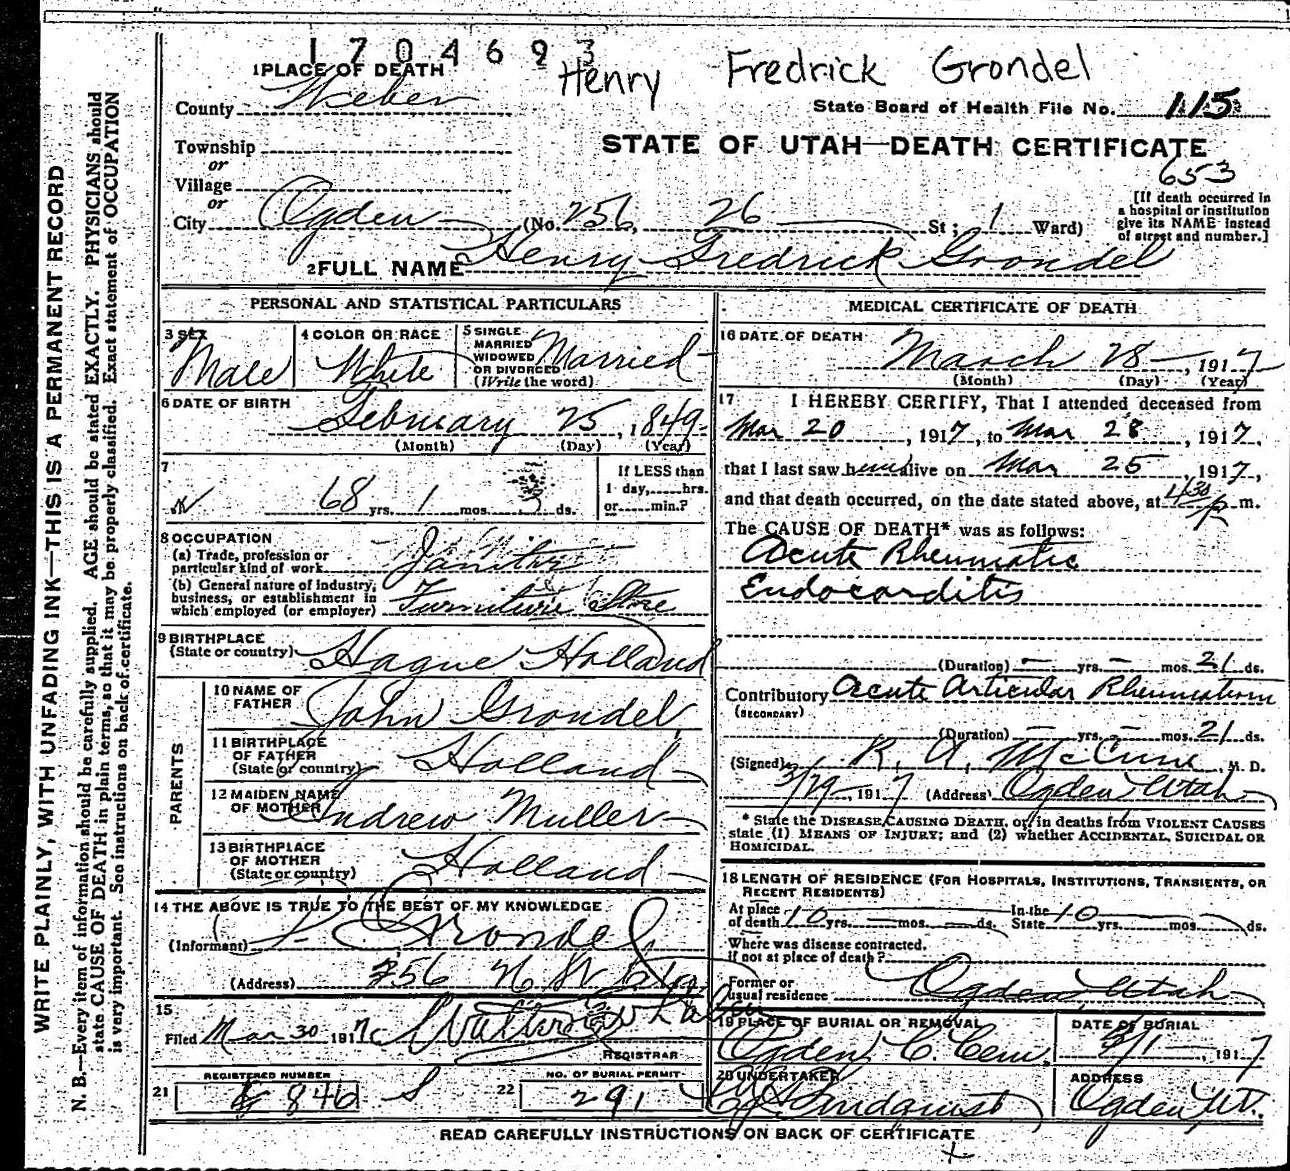 1704693
Henry Fredrick Grondel
1 PLACE OF DEATH
County Weber
State Board of Health File No. 115
Township
or
Village
or
City Ogden (No. 256, 26 St; 1 Ward)
STATE OF UTAH—DEATH CERTIFICATE
653
[If death occurred in
a hospital or institution
give its NAME instead
of street and number.]
2 FULL NAME Henry Fredrick Grondel
PERSONAL AND STATISTICAL PARTICULARS
3 SEX Male
4 COLOR OR RACE White
5 SINGLE
MARRIED
WIDOWED
OR DIVORCED
(Write the word) Married
6 DATE OF BIRTH
February 25, 1849
(Month) (Day) (Year)
7
68 yrs. 1 mos. 3 ds.
If LESS than
1 day, hrs.
or min.?
8 OCCUPATION
(a) Trade, profession or
particular kind of work Janitor
(b) General nature of industry,
business, or establishment in
which employed (or employer) Furniture Store
9 BIRTHPLACE
(State or country) Hague Holland
PARENTS
10 NAME OF
FATHER John Grondel
11 BIRTHPLACE
OF FATHER
(State or country) Holland
12 MAIDEN NAME
OF MOTHER Andrew Muller
13 BIRTHPLACE
OF MOTHER
(State or country) Holland
14 THE ABOVE IS TRUE TO THE BEST OF MY KNOWLEDGE
(Informant) Grondel
(Address) 256 26 St
15
Filed Mar 30 1917
REGISTRAR
21 REGISTERED NUMBER 846
22 NO. OF BURIAL PERMIT 291
MEDICAL CERTIFICATE OF DEATH
16 DATE OF DEATH
March 28, 1917
(Month) (Day) (Year)
17 I HEREBY CERTIFY, That I attended deceased from
Mar 20, 1917, to Mar 28, 1917,
that I last saw him alive on Mar 25, 1917,
and that death occurred, on the date stated above, at 4:30 P m.
The CAUSE OF DEATH* was as follows:
Acute Rheumatic
Endocarditis
(Duration) — yrs. — mos. 21 ds.
Contributory Acute Articular Rheumatism
(SECONDARY)
(Duration) — yrs. — mos. 21 ds.
(Signed) R. A. McCune, M. D.
3/29, 1917 (Address) Ogden Utah
* State the DISEASE CAUSING DEATH, or, in deaths from VIOLENT CAUSES
state (1) MEANS OF INJURY; and (2) whether ACCIDENTAL, SUICIDAL OR
HOMICIDAL.
18 LENGTH OF RESIDENCE (FOR HOSPITALS, INSTITUTIONS, TRANSIENTS, OR
RECENT RESIDENTS)
At place of death 10 yrs. — mos. — ds. In the State 10 yrs. mos. ds.
Where was disease contracted,
if not at place of death?
Former or
usual residence Ogden, Utah
19 PLACE OF BURIAL OR REMOVAL
Ogden C. Cem.
DATE OF BURIAL
1917
20 UNDERTAKER
Lindquist
ADDRESS
Ogden Ut.
READ CAREFULLY INSTRUCTIONS ON BACK OF CERTIFICATE
WRITE PLAINLY, WITH UNFADING INK—THIS IS A PERMANENT RECORD
N. B.—Every item of information should be carefully supplied. AGE should be stated EXACTLY. PHYSICIANS should
state CAUSE OF DEATH in plain terms, so that it may be properly classified. Exact statement of OCCUPATION
is very important. See instructions on back of certificate.